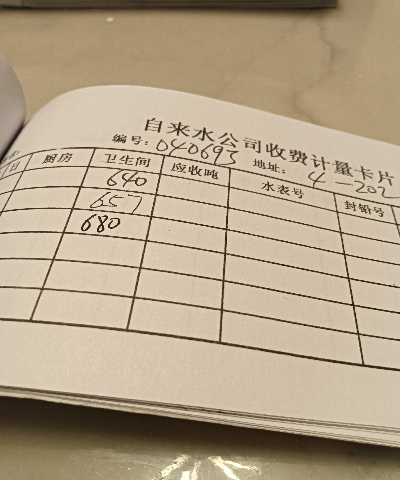 自来水公司收费计量卡片
编号：040693 地址：4-202
日 厨房 卫生间 应收吨 水表号 封铅号
640
657
680